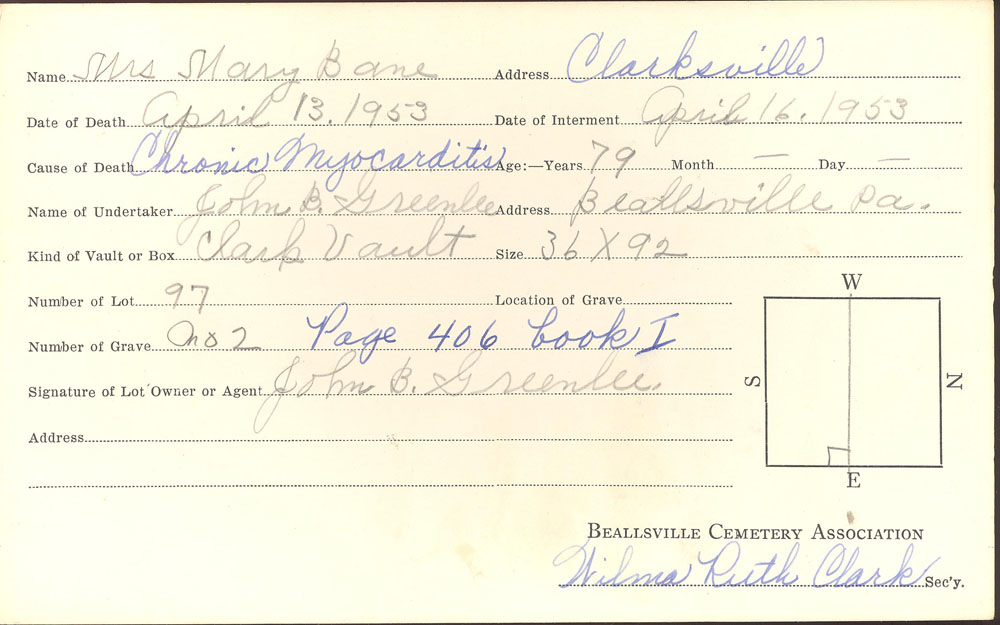 Name Mrs Mary Bane Address Clarksville
Date of Death April 13, 1953 Date of Interment April 16, 1953
Cause of Death Chronic Myocarditis Age:—Years 79 Month — Day —
Name of Undertaker John B. Greenlee Address Beallsville Pa.
Kind of Vault or Box Clark Vault Size 36 X 92
Number of Lot 97 Location of Grave
W
Number of Grave No 2 Page 406 book I
S N
Signature of Lot Owner or Agent John B. Greenlee.
Address
E
BEALLSVILLE CEMETERY ASSOCIATION
Wilma Ruth Clark Sec'y.